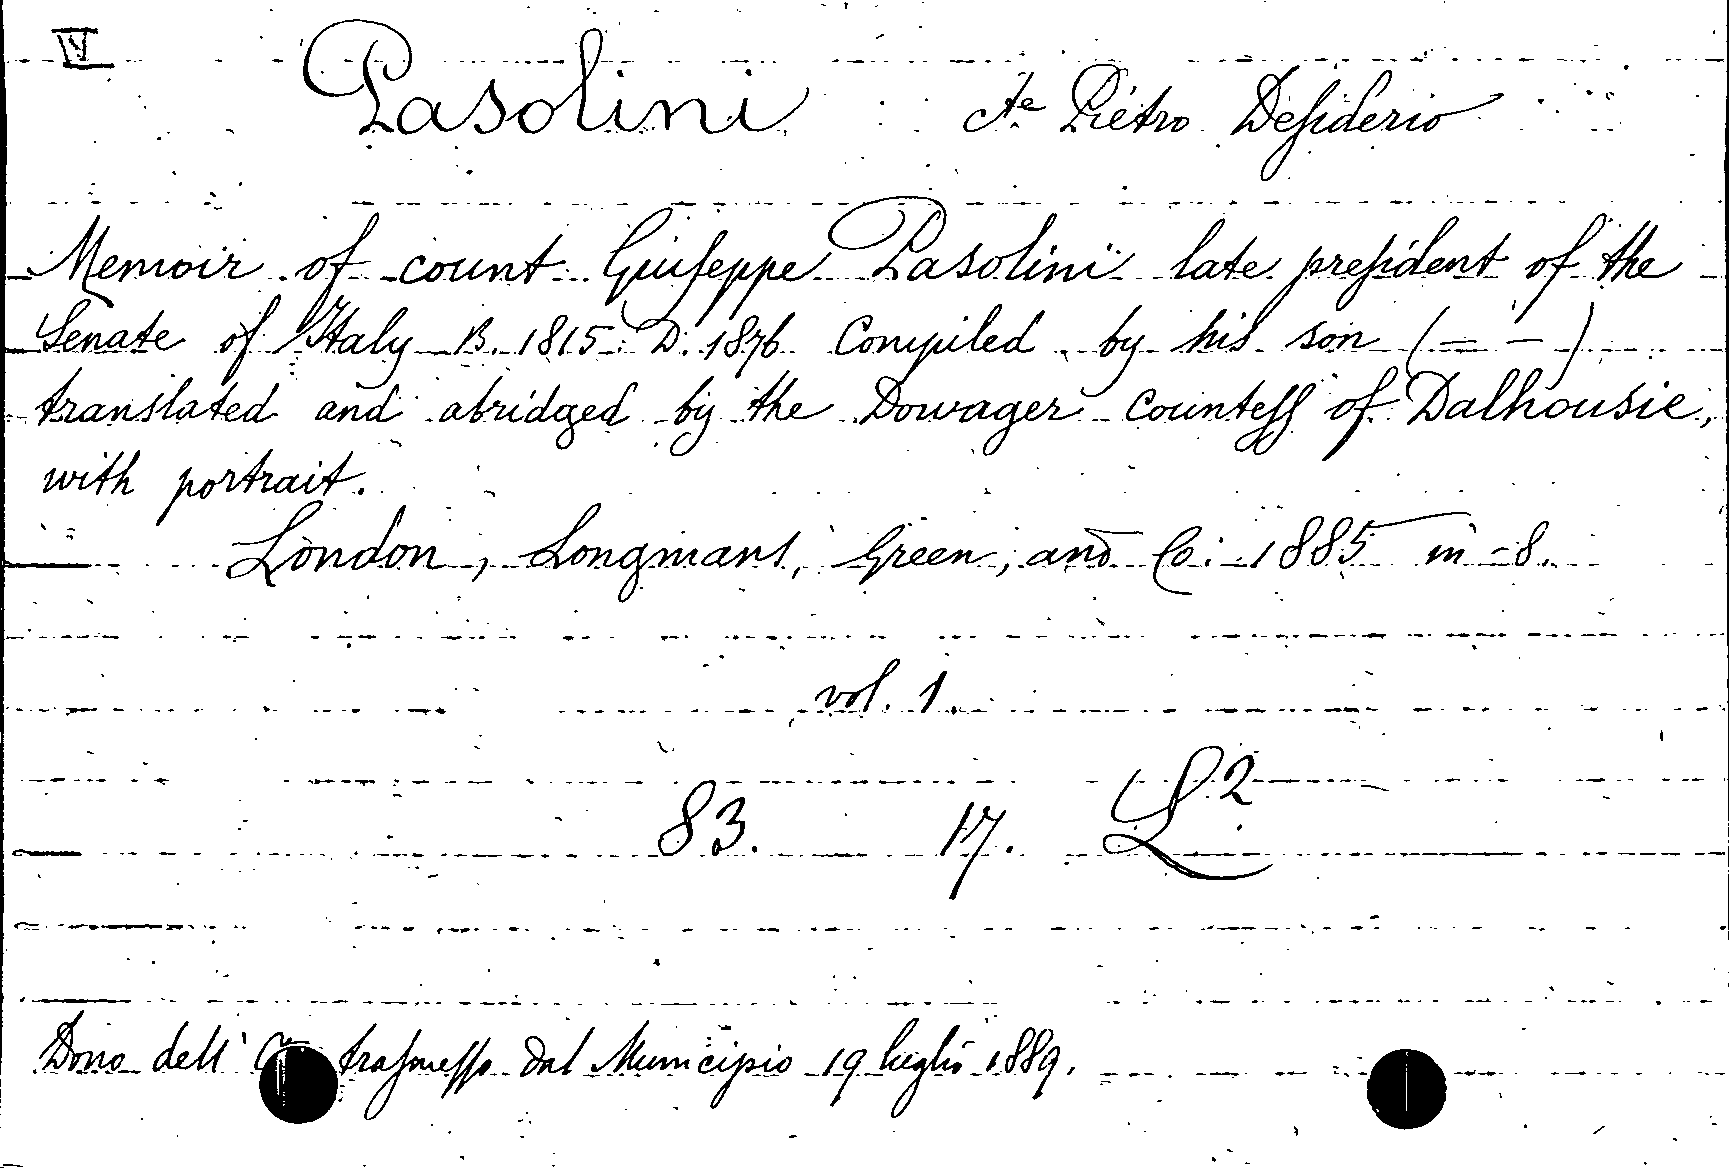 IV
Pasolini cte Pietro Desiderio
Memoir of count Giuseppe Pasolini late president of the
Senate of Italy B. 1815. D. 1876 Compiled by his son (= -)
translated and abridged by the Dowager Countess of Dalhousie,
with portrait.
London, Longmans, Green, and Co: 1885 in-8.
vol. 1.
83. 17. L2
Dono dell' trasmesso dal Municipio 19 luglio 1889.